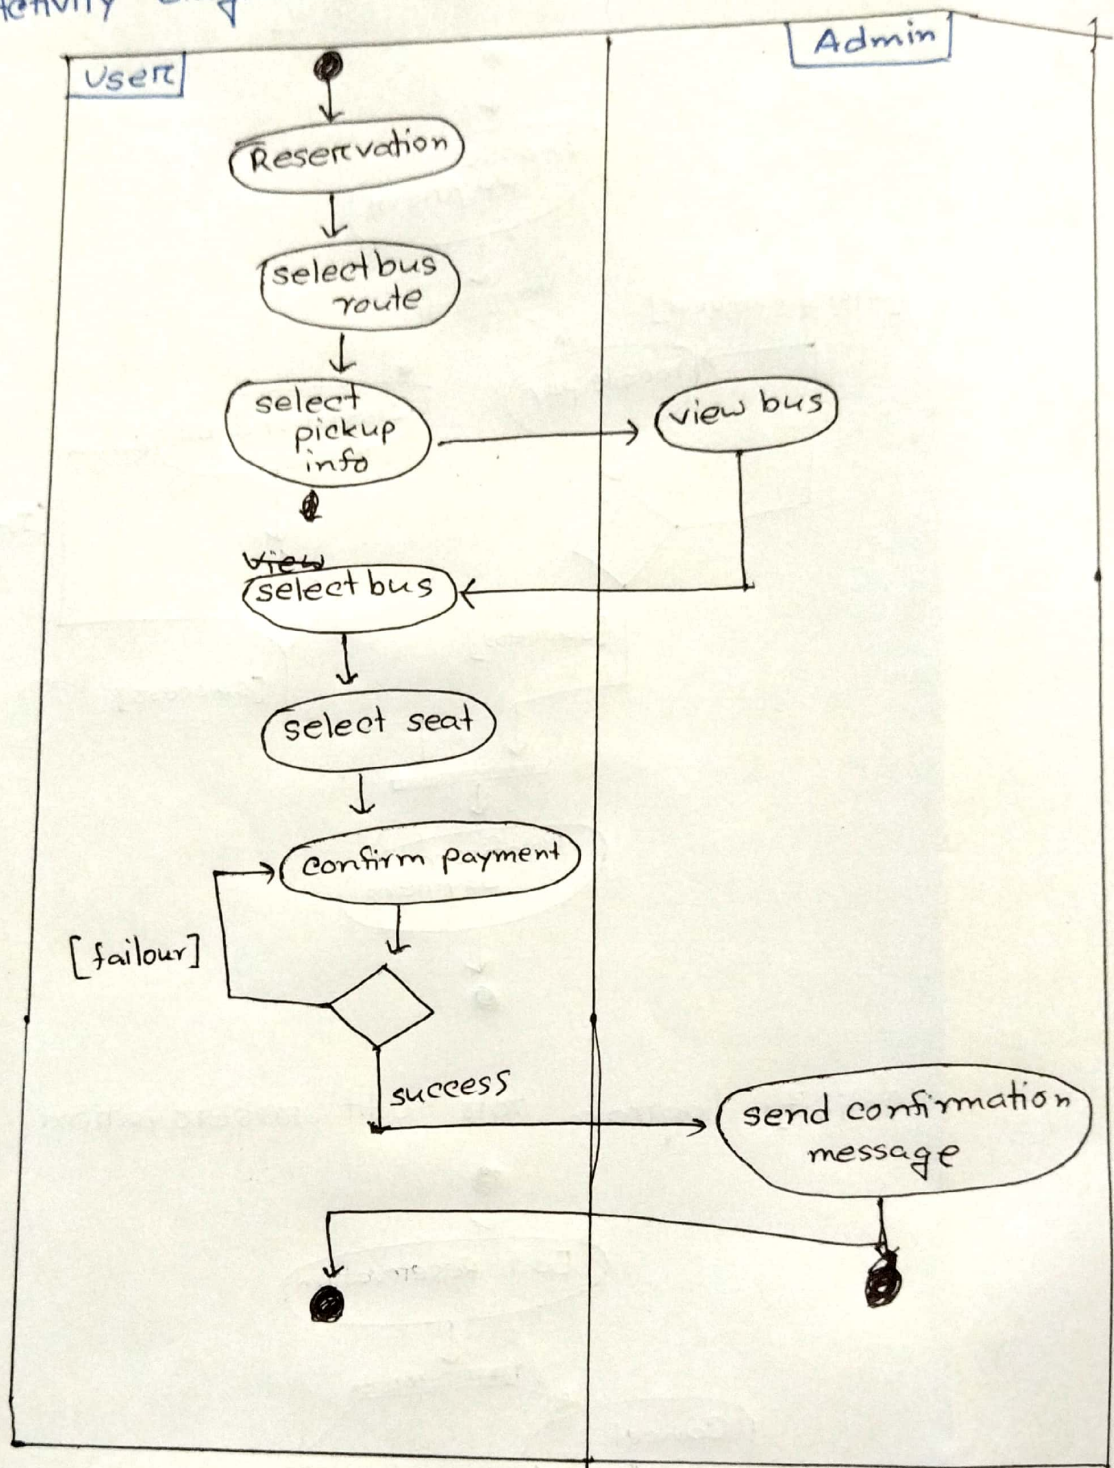 Activity
User
Admin
Reservation
select bus
route
select
pickup
info
view bus
View
select bus
select seat
confirm payment
[failour]
success
send confirmation
message